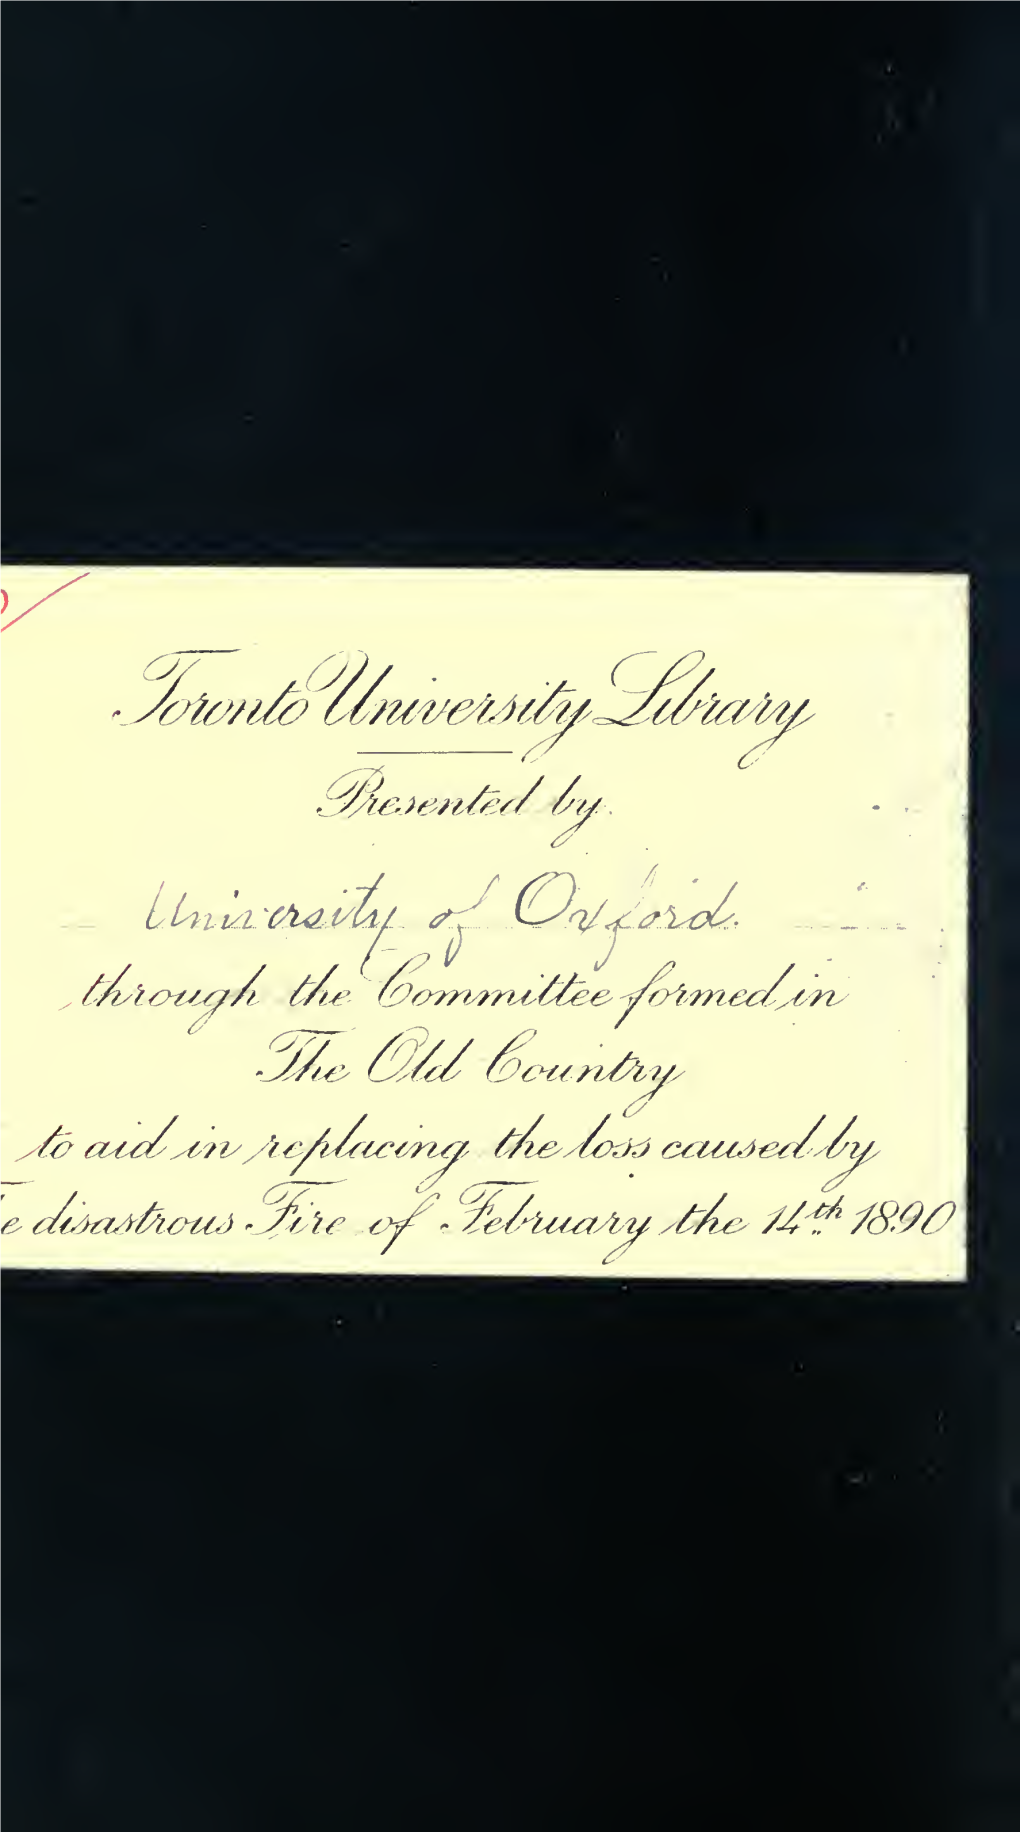 Toronto University Library
Presented by
University of Oxford.
through the Committee formed in
The Old Country
to aid in replacing the loss caused by
e disastrous Fire of February the 14th 1890